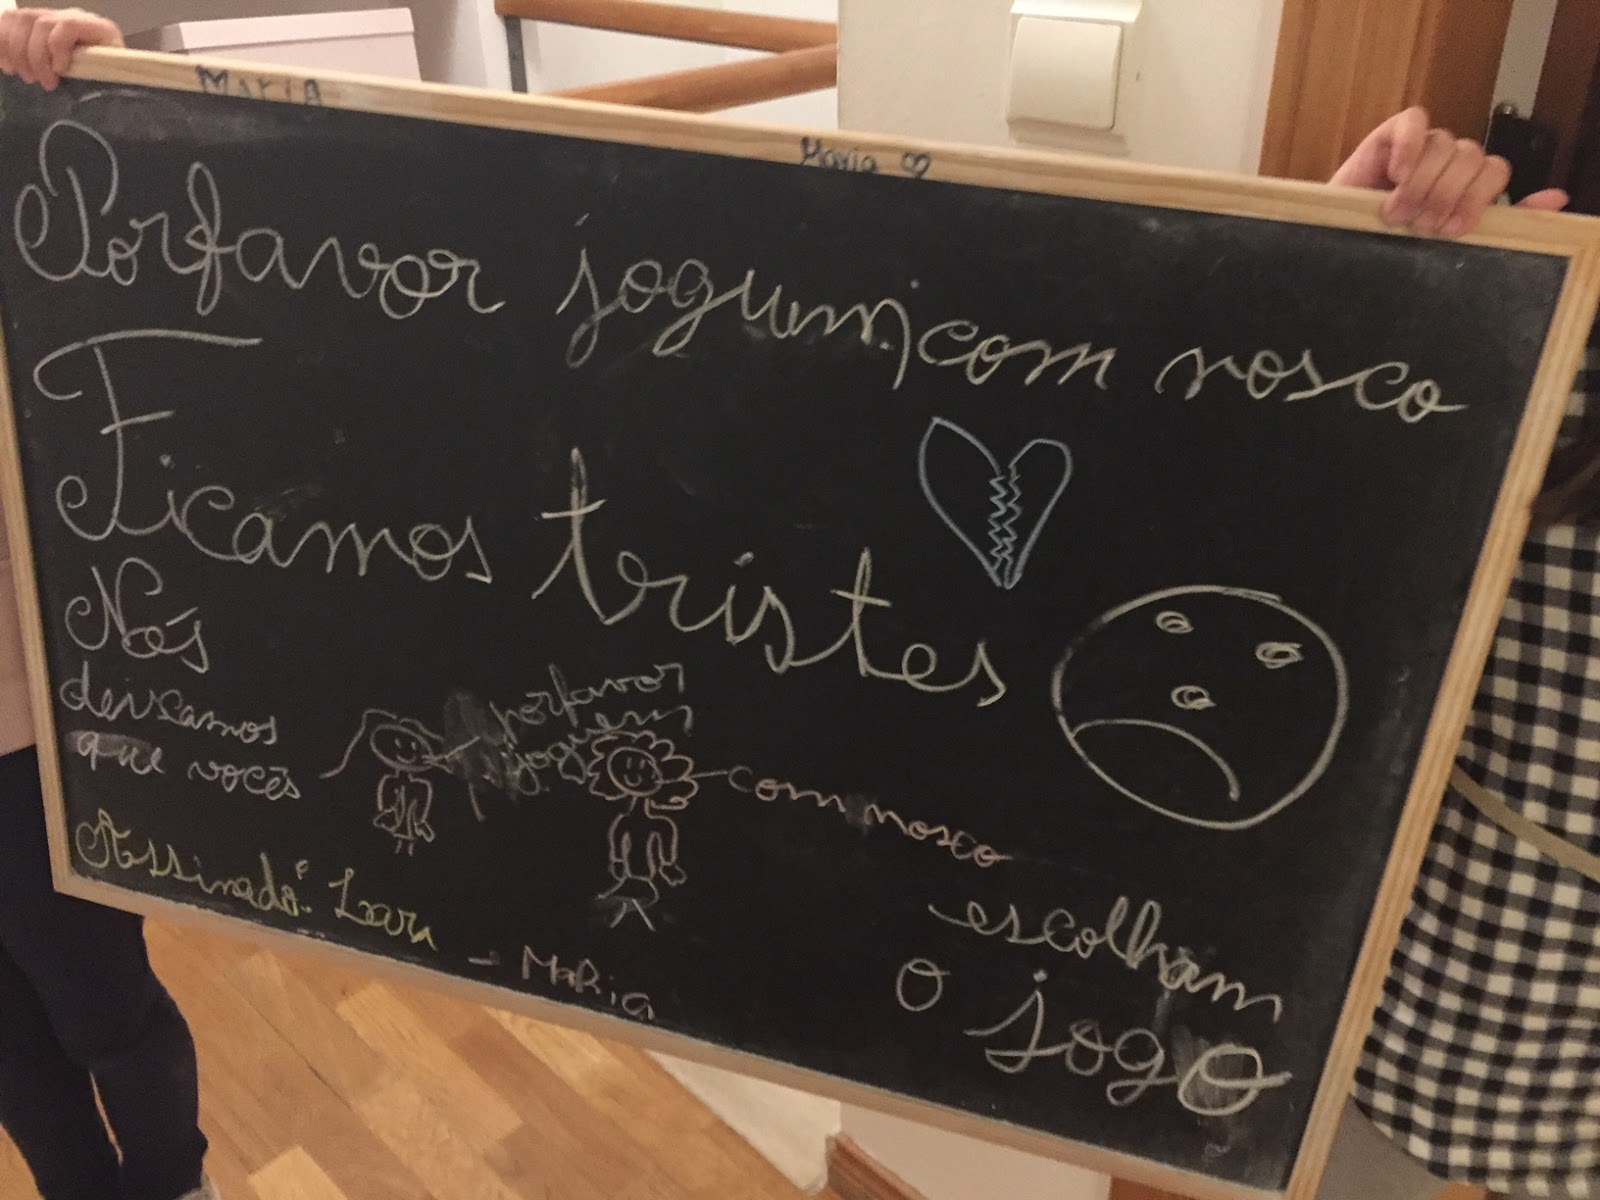 MARIA
Maria
Porfavor joguem com nosco
Ficamos tristes
Nós
deixamos
que vocês
porfavor
joguem
com nosco
escolham
o jogo
Assinado: Lara
- MaRia